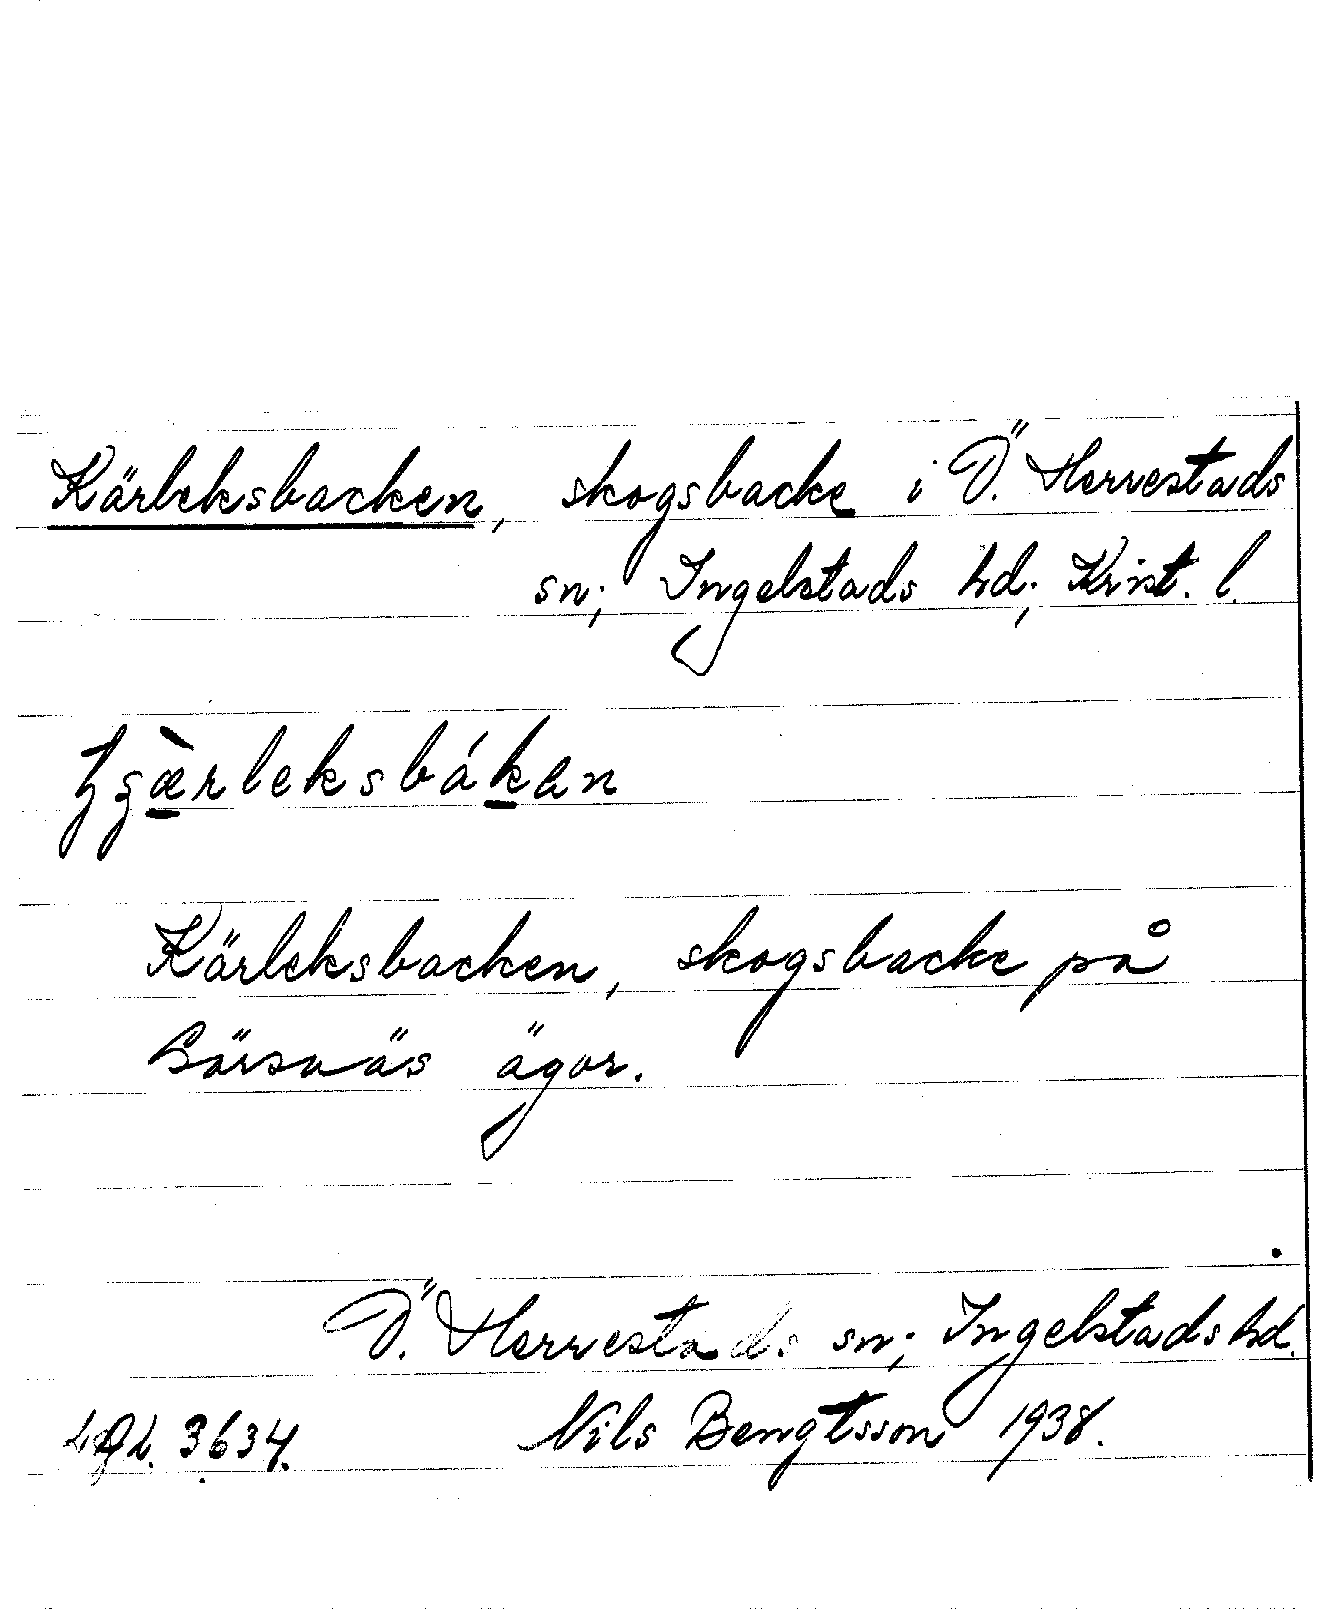 Kärleksbacken, skogsbacke i Ö. Herrestads
sn; Ingelstads hd; Krist. l.
Kärleksbacken, skogsbacke på
ägor.
Ö. Herrestads sn; Ingelstads hd.
3634. Nils Bengtsson 1938.